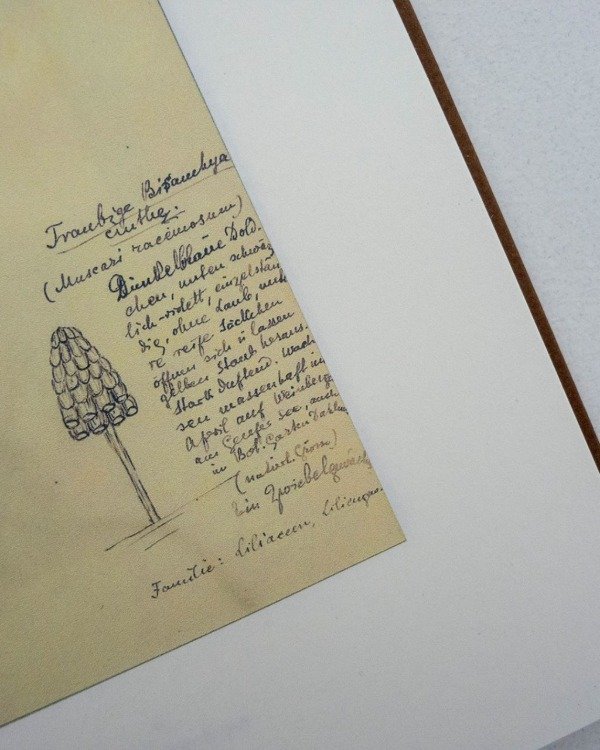 Traubige Bisamhya
cinthe.
(Muscari racemosum)
Dunkelblaue Dold-
chen, unten schwärz
lich-violett, einzelstän
dig, ohne Laub, unte
re reife Säckchen
öffnen sich u lassen
gelben Staub heraus.
Stark duftend. Wach
sen massenhaft im
April auf Weinberge
am Genfer See, auch
in Bot. Garten Dahlem
(natürl. Grösse)
Ein Zwiebelgewächs
Familie: Liliaceen, Liliengew.